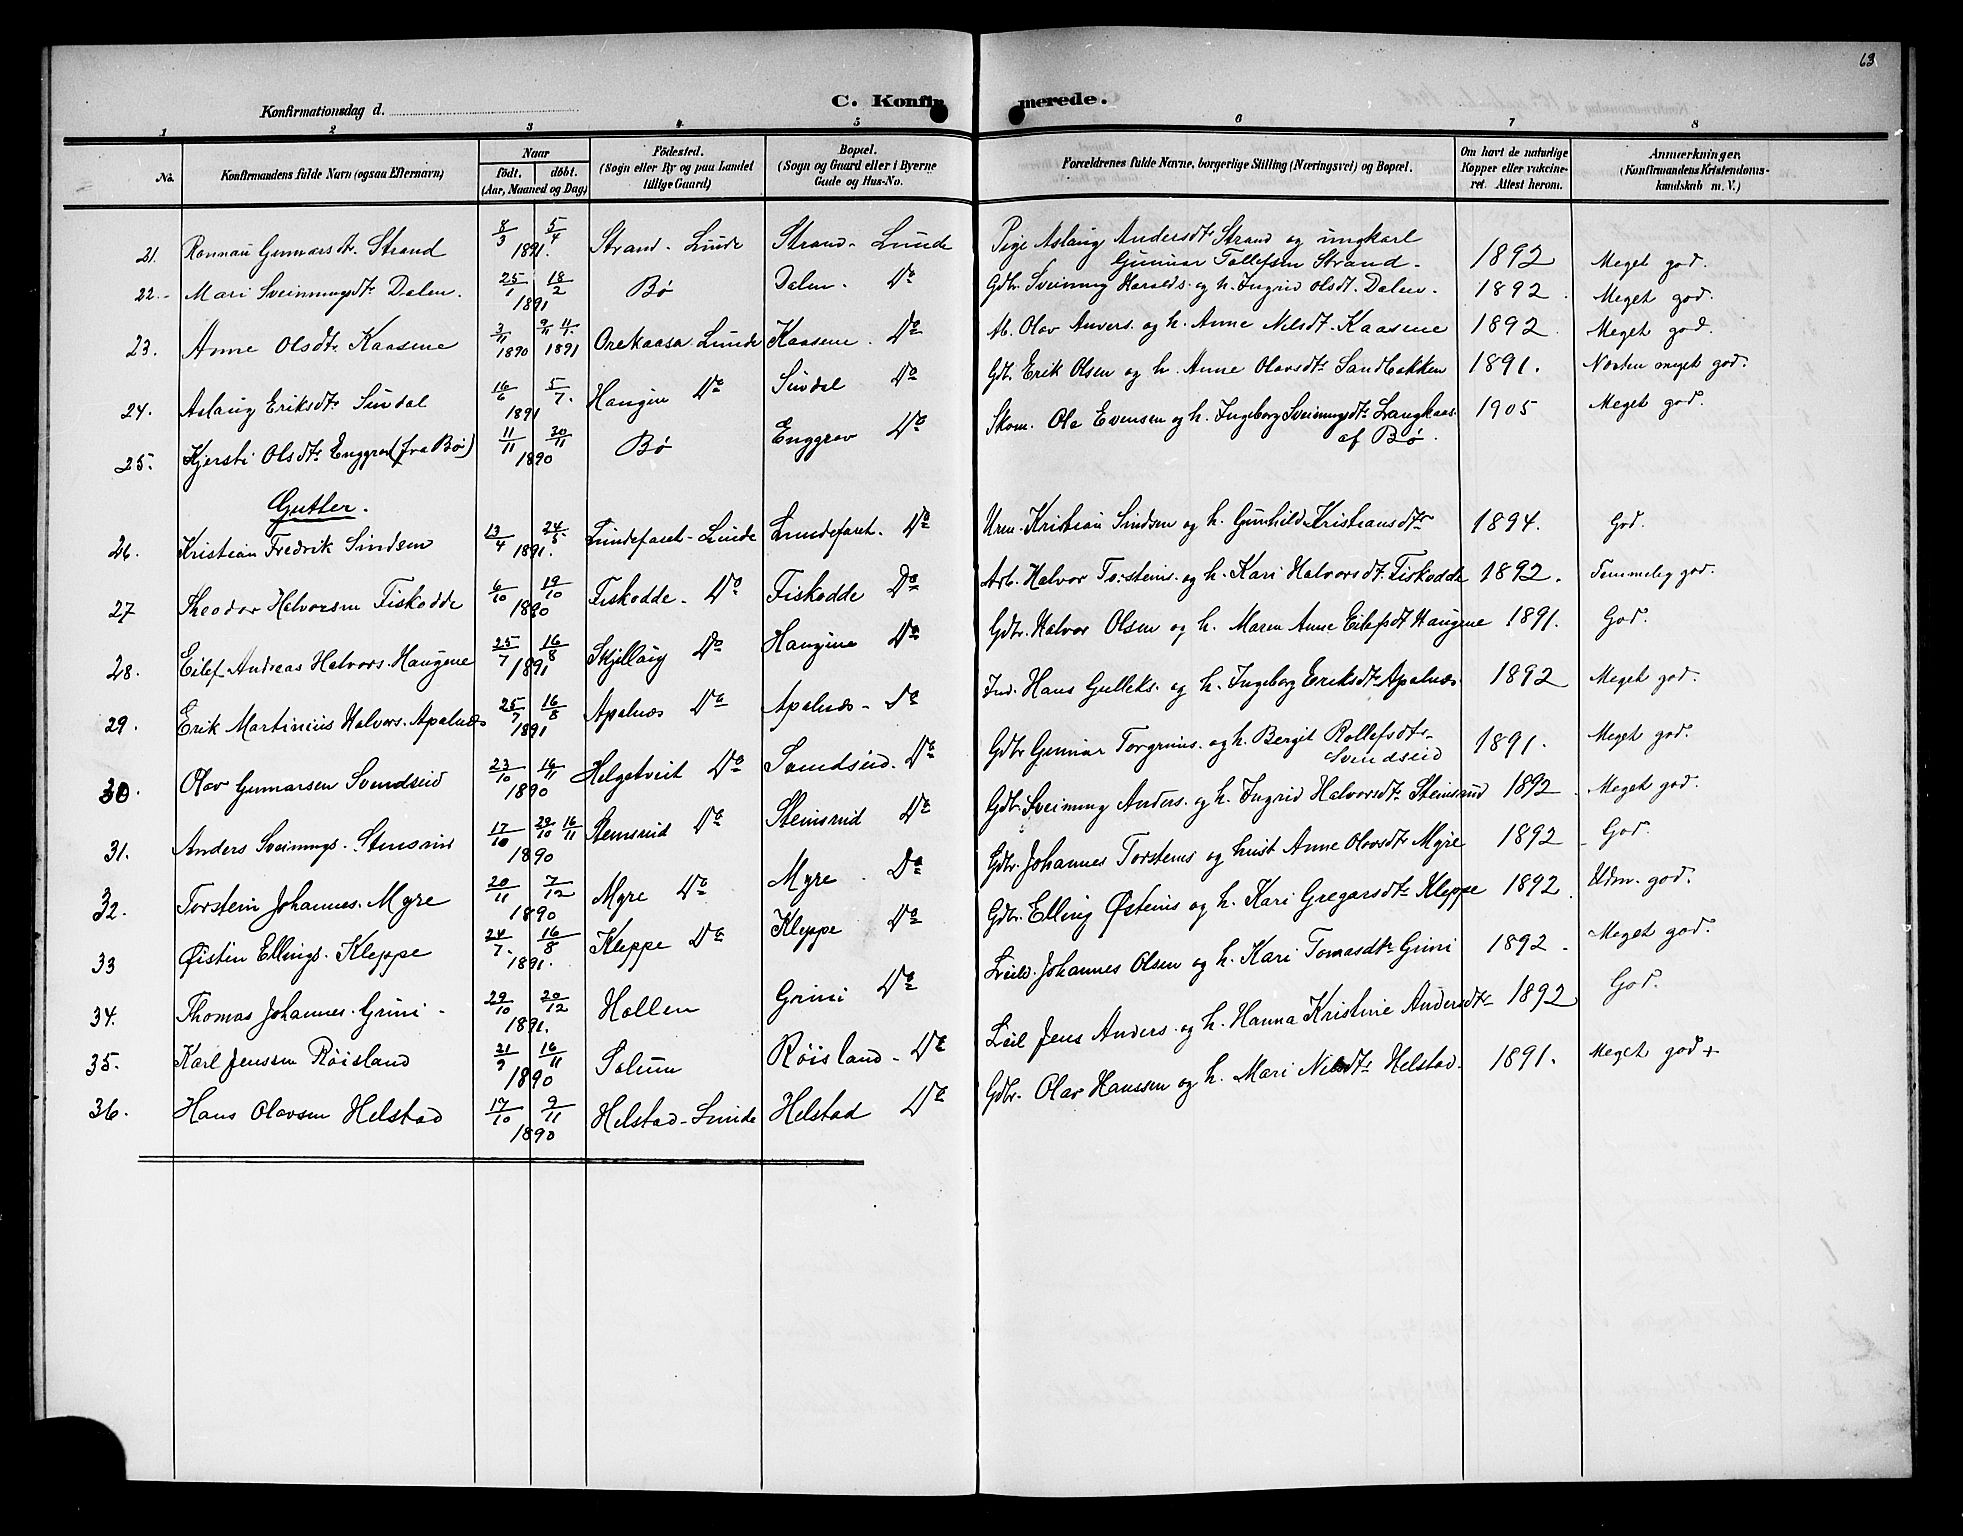 63
Konfirmationsdag d.
C. Konfirmerede.
1 2 3 4 5 6 7 8
No. | Konfirmandens fulde Navn (ogsaa Efternavn) | Naar født. døbt. (Aar, Maaned og Dag) | Fødested. (Sogn eller By og paa Landet tillige Gaard) | Bopæl. (Sogn og Gaard eller i Byerne Gade og Hus-No. | Forældrenes fulde Navne, borgerlige Stilling (Næringsvei) og Bopæl. | Om havt de naturlige Kopper eller vakcineret. Attest herom. | Anmærkninger. (Konfirmandens Kristendomskundskab m. V.)
21. Ronnau Gunnarsdtr. Strand | 8/3 5/4 1891. | Strand - Lunde | Strand - Lunde | Pige Aslaug Andersdtr Strand og ungkarl Gunnar Tollefsen Strand - | 1892 | Meget god.
22. - Mari Sveinungsdtr Dalen. | 25/1 18/2 1891 | Bø | Dalen. Do | Gdbr. Sveinung Haralds. og h. Ingrid Olsdt. Dalen. | 1892. | Meget god.
23. Anne Olsdtr Kaasene | 3/11 1890 9/11 4/1 1891 | Orekaasa. Lunde | Kaasene. Do | Olav Anders. og h. Anne Nilsdt. Kaasene | 1892. | Meget god.
24. Aslaug Eriksdtr Sundal | 16/6 5/7. 1891 | Haugen Do | Sundal Do | Gdb. Erik Olsen og h. Anne Olavsdtr Sandbakken | 1891. | Næsten meget god.
25. Kjersti Olsdtr Enggrav (fra Bø) | 11/11 30/11 1890 | Bø | Enggrav Do | Skom. Ole Evensen og h. Ingeborg Sveinungsdtr Langkaas af Bø. | 1905 | Meget god.
Gutter.
26. Kristian Fredrik Sindsen | 13/4 24/5 1891. | Lundefaret - Lunde | Lundefaret. Do | Urm. Kristian Sindsen og h. Gunhild Kristiansdtr | 1894. | God.
27 Theodor Halvorsen Fiskodde | 6/10 19/10 1890 | Fiskodde. Do | Fiskodde Do | Arb. Halvor Torsteins. og h. Kari Halvorsdt. Fiskodde | 1892. | Temmelig god.
28. Eilef Andreas Halvors. Haugene | 25/7 16/8 1891 | Skjellaug Do | Haugene Do | Gdbr. Halvor Olsen og h. Maren Anne Eilefsdt Haugene | 1891. | God.
29. Erik Martinius Halvors. Apalnæs | 25/7 16/8 1891 | Apalnæs Do | Apalnæs - Do | Ind. Hans Gulleks. og h. Ingeborg Eriksdtr Apalnæs. | 1892 | Meget god.
30. Olav Gunnarsen Svendseid | 23/10 16/11 1890 | Helgetveit Do | Svendseid. Do | Gdbr Gunnar Torgrims. og h. Bergit Rollefsdtr- Svendseid | 1891. | Meget god.
31. Anders Sveinungs. Stensrud | 17/10 29/10 16/11 1890 | Stensrud Do | Steinsrud Do | Gdbr. Sveinung Anders. og h. Ingrid Halvorsdtr Steinsrud | 1892. | Meget god.
32. Torstein Johannes. Myre | 20/11 7/12 1890 | Myre Do | Myre. Do | Gdbr. Johannes Torsteins og hust Anne Olavsdtr Myre | 1892 | God.
33 Øistein Ellings. Kleppe | 24/7. 16/8 1891. | Kleppe Do | Kleppe Do | Gdbr. Elling Østeins og h. Kari Gregarsdtr Kleppe | 1892 | Udm. god.
34. Thomas Johannes. Grini - | 29/10 20/12 1891. | Hollen | Grini Do | Leil. Johannes Olsen og h. Kari Tomasdtr Grini | 1892. | Meget god.
35. Karl Jenssen Røisland | 21/9 16/11 1890 | Solum | Røisland - Do | Leil Jens Anders. og h. Hanna Kristine Andersdtr | 1892 | God.
36. Hans Olavsen Helstad | 17/10 9/11 1890 | Helstad - Lunde | Helstad Do | Gdbr. Olav Hanssen og h. Mari Nilsdtr Helstad. | 1891. | Meget god +